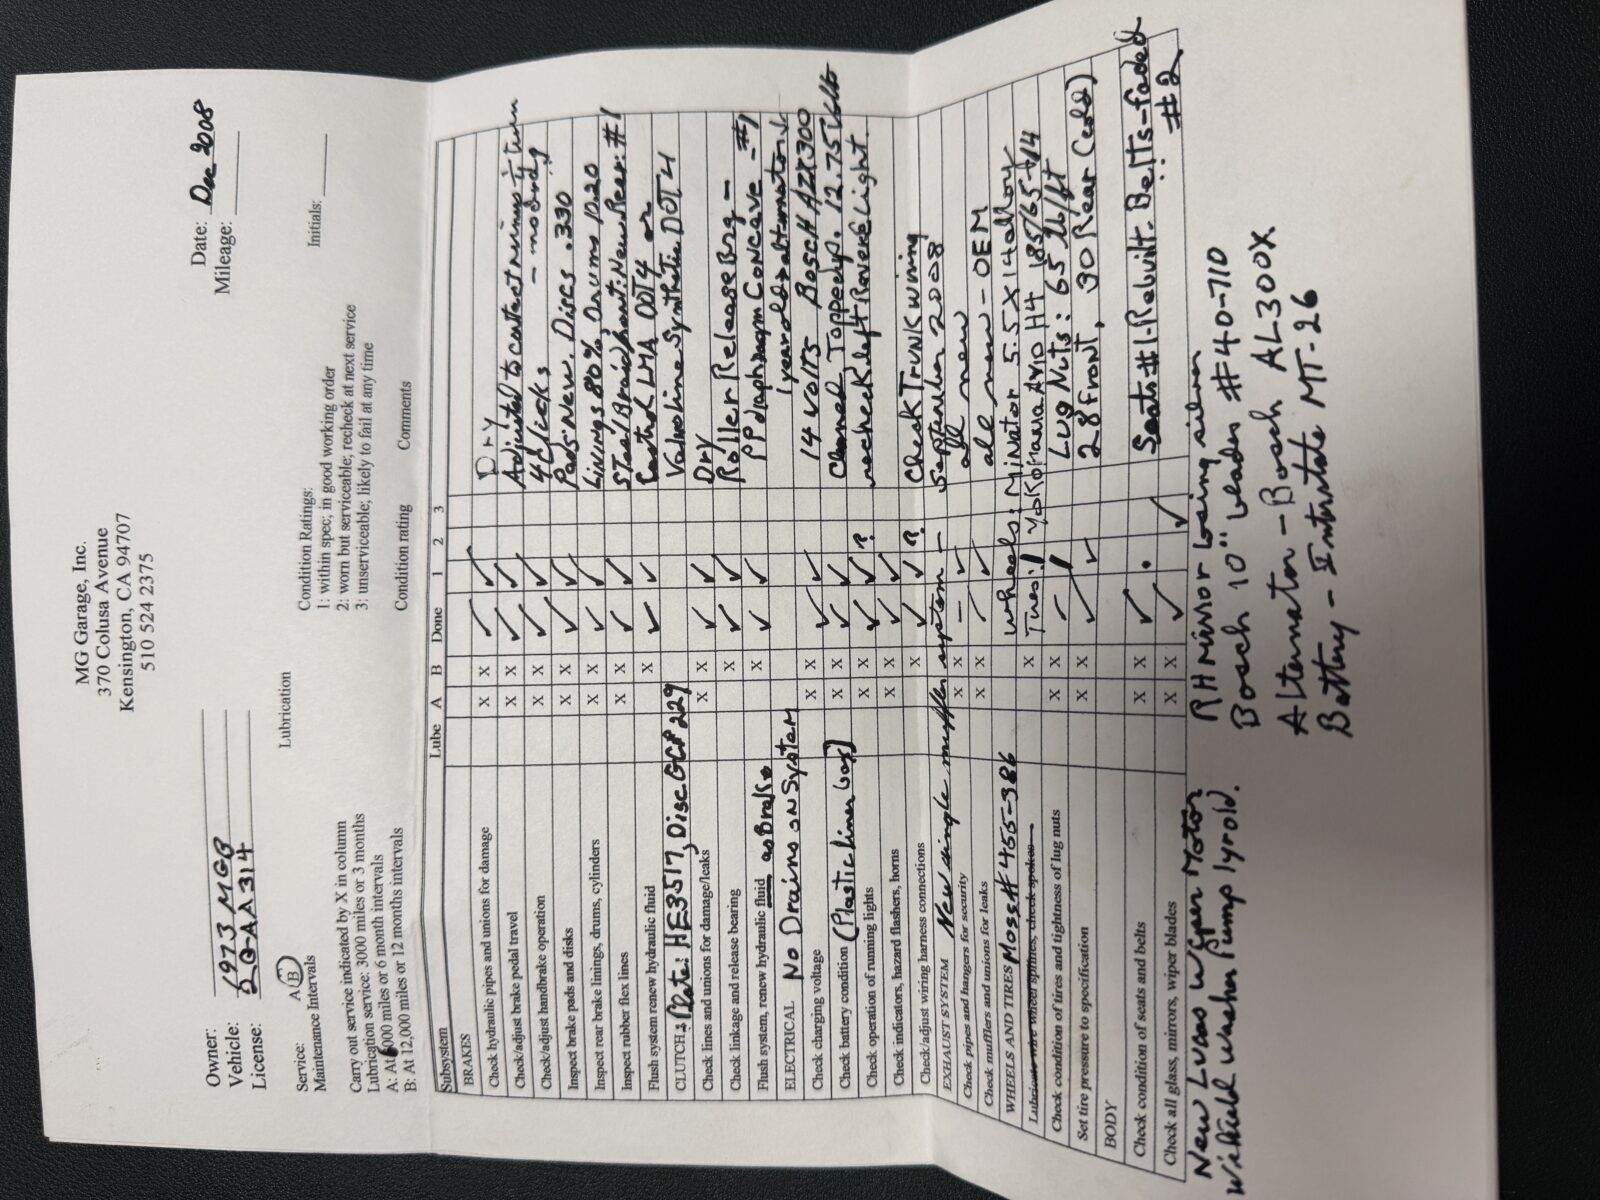 MG Garage, Inc.
370 Colusa Avenue
Kensington, CA 94707
510 524 2375
Owner:
Vehicle: 1973 MGB
License:
Date: Dec 2008
Mileage:
Service: A B
Maintenance Intervals
Lubrication
Initials:
Carry out service indicated by X in column
Lubrication service: 3000 miles or 3 months
A: At 6000 miles or 6 month intervals
B: At 12,000 miles or 12 months intervals
Condition Ratings:
1: within spec; in good working order
2: worn but serviceable; recheck at next service
3: unserviceable; likely to fail at any time
Condition rating Comments
Subsystem Lube A B Done 1 2 3
BRAKES
Check hydraulic pipes and unions for damage X X ✓ ✓ Dry
Check/adjust brake pedal travel X X ✓ ✓ Adjusted to contact minus turn
Check/adjust handbrake operation X X ✓ ✓ 4 Clicks
Inspect brake pads and disks X X ✓ ✓ Pads: New. Discs .330
Inspect rear brake linings, drums, cylinders X X ✓ ✓ Linings 80%, Drums 10.20
Inspect rubber flex lines X X ✓ ✓ Steel/Braid front: New. Rear: #1
Flush system renew hydraulic fluid X ✓ ✓ Castrol LMA DOT4 or
CLUTCH: Plate: HE3517, Disc GCP229 Valvoline Synthetic DOT4
Check lines and unions for damage/leaks X X ✓ ✓ Dry
Check linkage and release bearing X ✓ ✓ Roller Release Brg -
Flush system, renew hydraulic fluid as Brake X ✓ ✓ PP diaphragm Concave - #1
ELECTRICAL No Drains on System 1 year old alternator
Check charging voltage X X ✓ ✓ 14 Volts Bosch
Check battery condition (Plastic liner box) X X ✓ ✓ Cleaned, Topped up. 12.75 Volts
Check operation of running lights X X ✓ ✓ ? recheck left Reverse Light
Check indicators, hazard flashers, horns X X ✓ ✓
Check/adjust wiring harness connections X ✓ ✓ ? Check Trunk wiring
EXHAUST SYSTEM New single muffler system - September 2008
Check pipes and hangers for security X X - ✓ all new
Check mufflers and unions for leaks X X ✓ ✓ all new - OEM
WHEELS AND TIRES Moss# 455-386 Wheels: Minator 5.5 X 14 alloy
Lubricate wire wheel splines, check spokes X Tires: Yokohama AVID H4 185/65-14
Check condition of tires and tightness of lug nuts X X Lug Nuts: 65 lb/ft
Set tire pressure to specification X X ✓ ✓ 28 Front, 30 Rear (cold)
BODY
Check condition of seats and belts X X ✓ Seats #1-Rebuilt. Belts-faded
Check all glass, mirrors, wiper blades X X ✓ ✓ #2
New Lucas Wiper Motor
Windshield washer Pump 1 yr old.
RH Mirror losing silver
Bosch 10" blades #40-710
Alternator - Bosch AL300X
Battery - Interstate MT-26